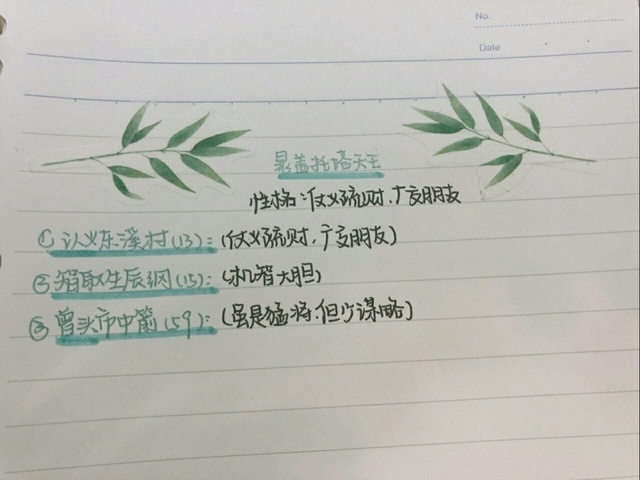 No.
Date
晁盖托塔天王
性格:仗义疏财,广交朋友
①认义东溪村(13):(仗义疏财,广交朋友)
②智取生辰纲(15):(机智大胆)
③曾头市中箭(59):(虽是猛将,但少谋略)